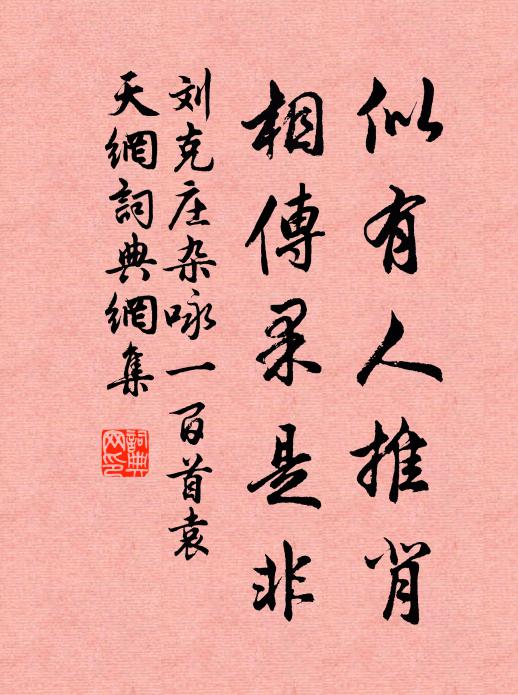 似有人推背
相傳果是非
刘克庄杂咏一百首袁
天網詞典網集
詞典网印